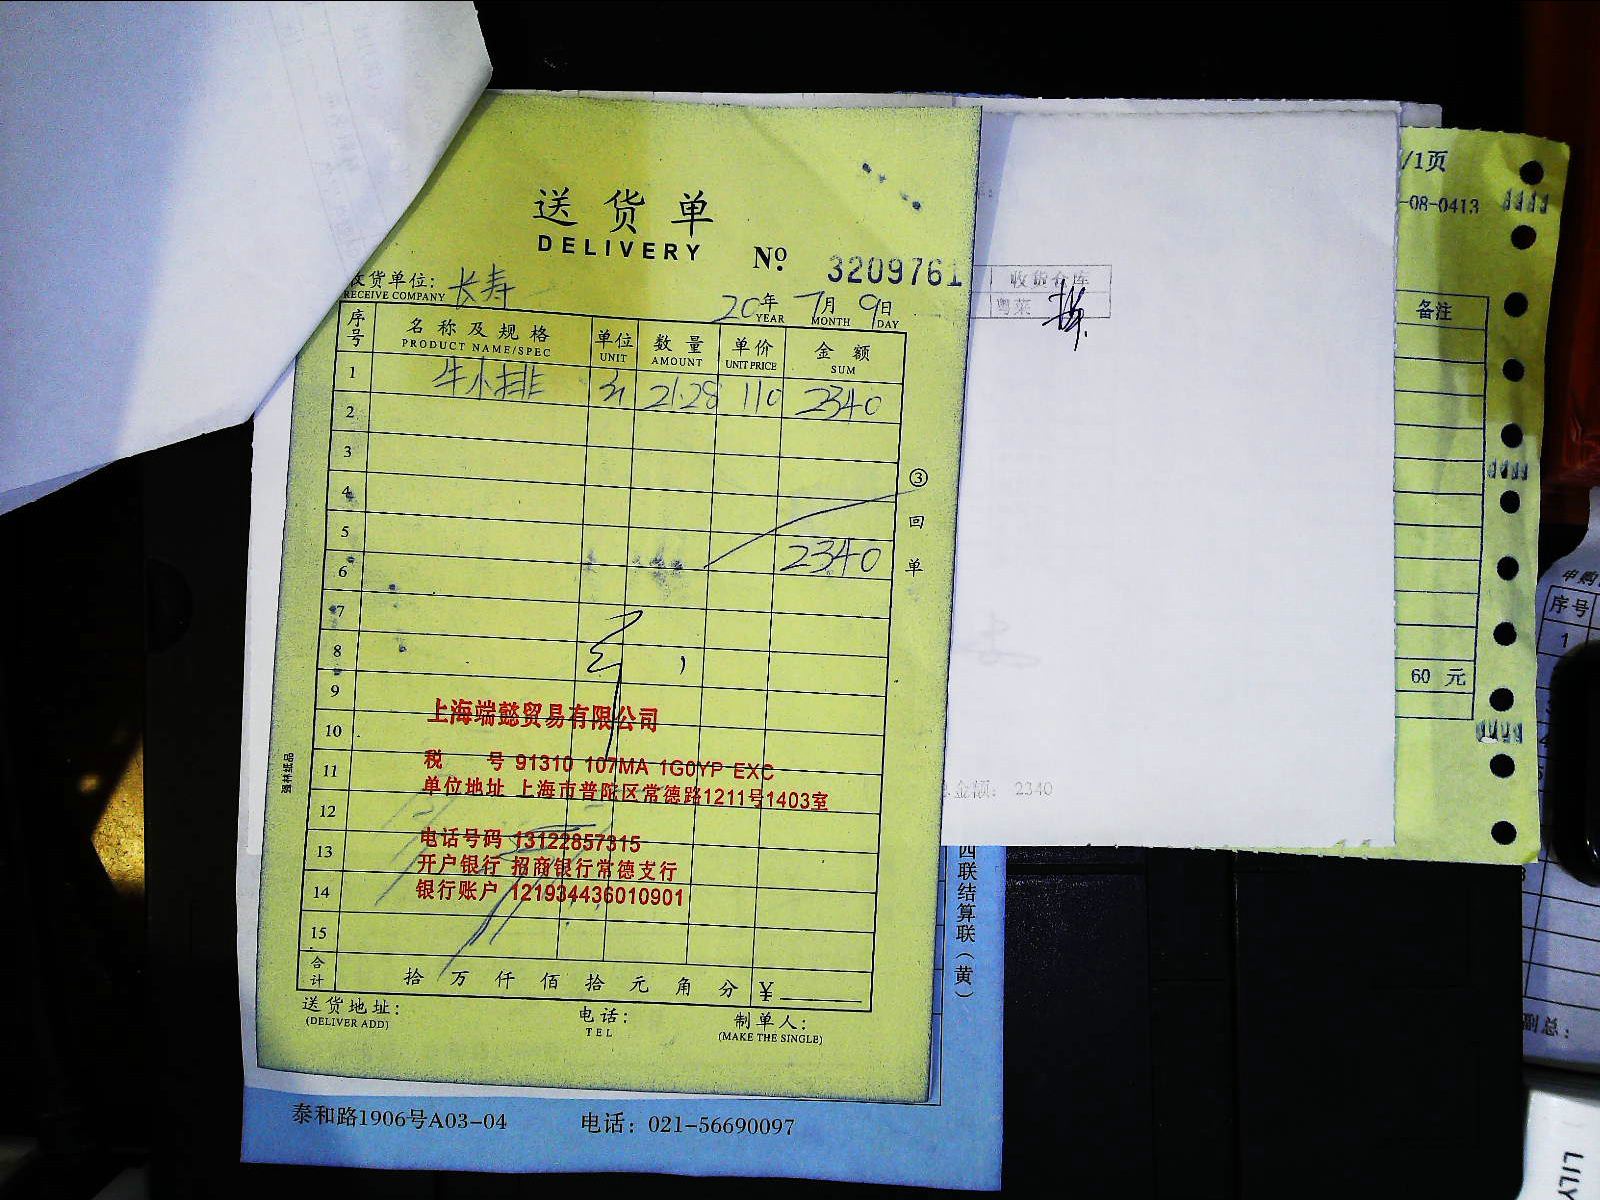 送货单
DELIVERY
№ 3209761
收货单位: 长寿
RECEIVE COMPANY
20年 7月 9日
YEAR MONTH DAY
序号 名称及规格 单位 数量 单价 金额
PRODUCT NAME/SPEC UNIT AMOUNT UNIT PRICE SUM
1 牛小排 21.28 110 2340
2
3
4
5
2340
6
7
8
9
10
11
12
13
14
15
③回单
上海端懿贸易有限公司
税 号 91310 107MA 1G0YP EXC
单位地址 上海市普陀区常德路1211号1403室
电话号码 13122857315
开户银行 招商银行常德支行
银行账户 121934436010901
合计 拾 万 仟 佰 拾 元 角 分 ¥
送货地址:
(DELIVER ADD)
电话:
TEL
制单人:
(MAKE THE SINGLE)
强林纸品
泰和路1906号A03-04 电话: 021-56690097
四联结算联(黄)
收货仓库
粤菜
金额: 2340
/1页
-08-0413
备注
60 元
申购
序号
1
副总:
LILY